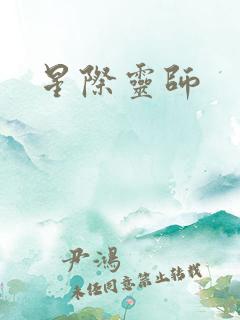 星際靈師
尹鴻
未經同意禁止轉載